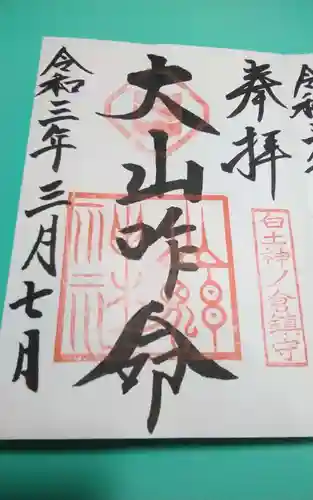 令和
奉拝
白土神ノ倉鎮守
大山咋命
令和三年三月七日